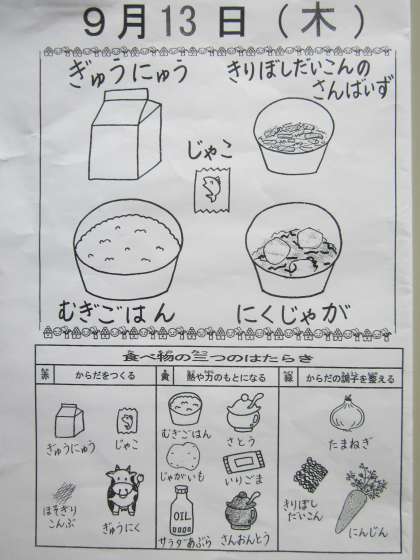 9月13日(木)
ぎゅうにゅう
きりぼしだいこんの
さんばいず
じゃこ
むぎごはん
にくじゃが
食べ物の三つのはたらき
赤 からだをつくる
黄 熱や力のもとになる
緑 からだの調子を整える
ぎゅうにゅう
じゃこ
ほそぎり
こんぶ
ぎゅうにく
むぎごはん
さとう
じゃがいも
いりごま
OIL
サラダあぶら
さんおんとう
たまねぎ
きりぼし
だいこん
にんじん